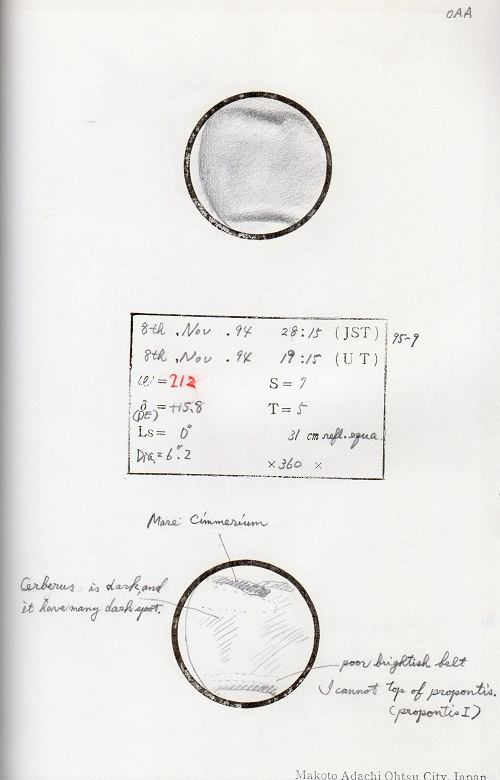 OAA
8th . Nov . 94 28:15 (JST)
95-9
8th . Nov . 94 19:15 (UT)
(ω) = 212 S = 7
δ = +15.8 T = 5
(DE)
Ls = 0° 31 cm refl. equa
Dia = 6".2
×360 ×
Mare Cimmerium
Cerberus is dark, and
it have many dark spot.
poor brightish belt
I cannot top of propontis.
(propontis I)
Makoto Adachi Ohtsu City, Japan